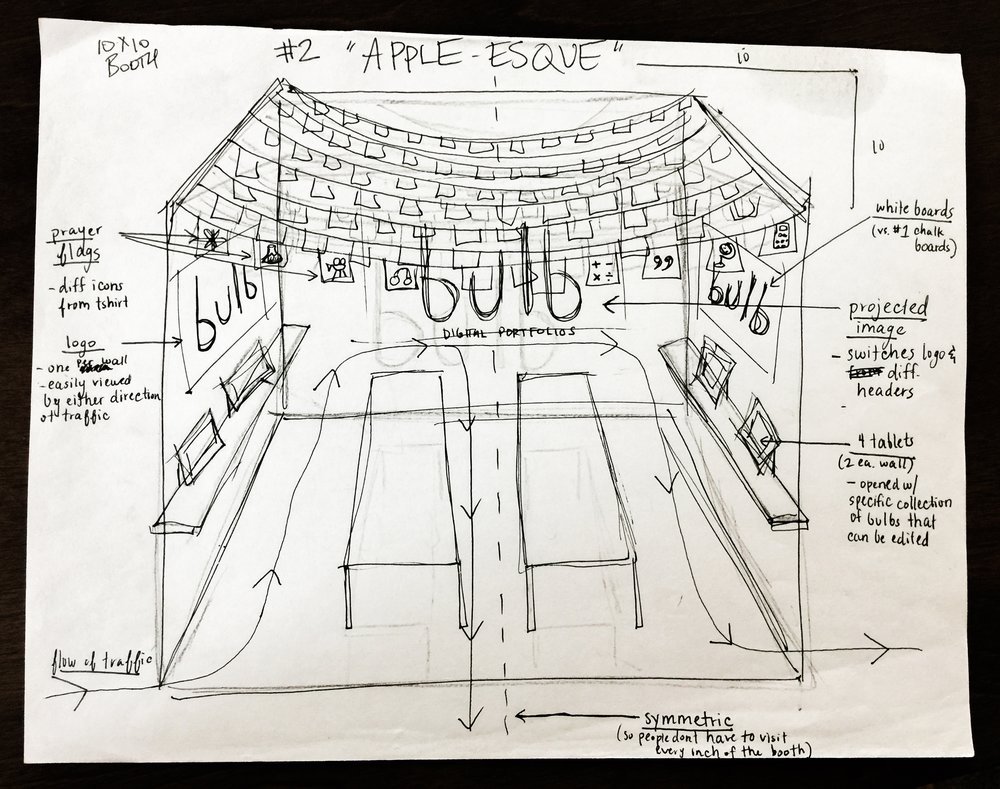 10X10
BOOTH
#2 "APPLE-ESQUE"
10
10
prayer
flags
- diff icons
from tshirt
logo
- one per wall
- easily viewed
by either direction
of traffic
bulb
bulb
DIGITAL PORTFOLIOS
bulb
white boards
(vs. #1 chalk
boards)
projected
image
- switches logo &
diff.
headers
4 tablets
(2 ea. wall)
- opened w/
specific collection
of bulbs that
can be edited
flow of traffic
symmetric
(so people dont have to visit
every inch of the booth)